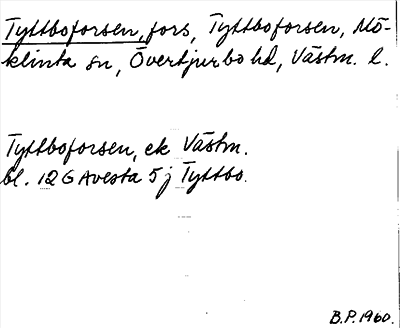 Tyttboforsen, fors, Tyttboforsen, Mö-
klinta sn, Övertjurbo hd, Västm. l.
Tyttboforsen, ek Västm.
bl. 12 G Avesta 5 j Tyttbo.
B.P. 1960.